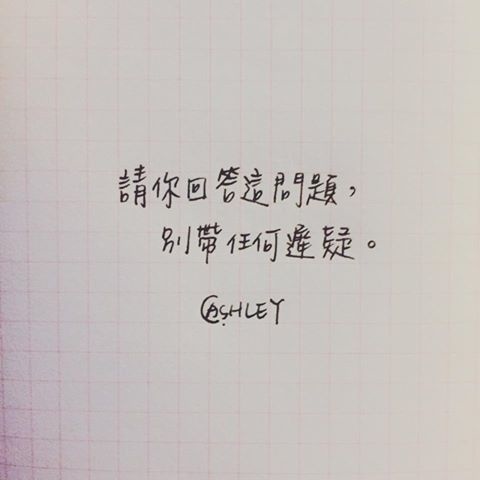 請你回答這問題，
別帶任何遲疑。
@ASHLEY